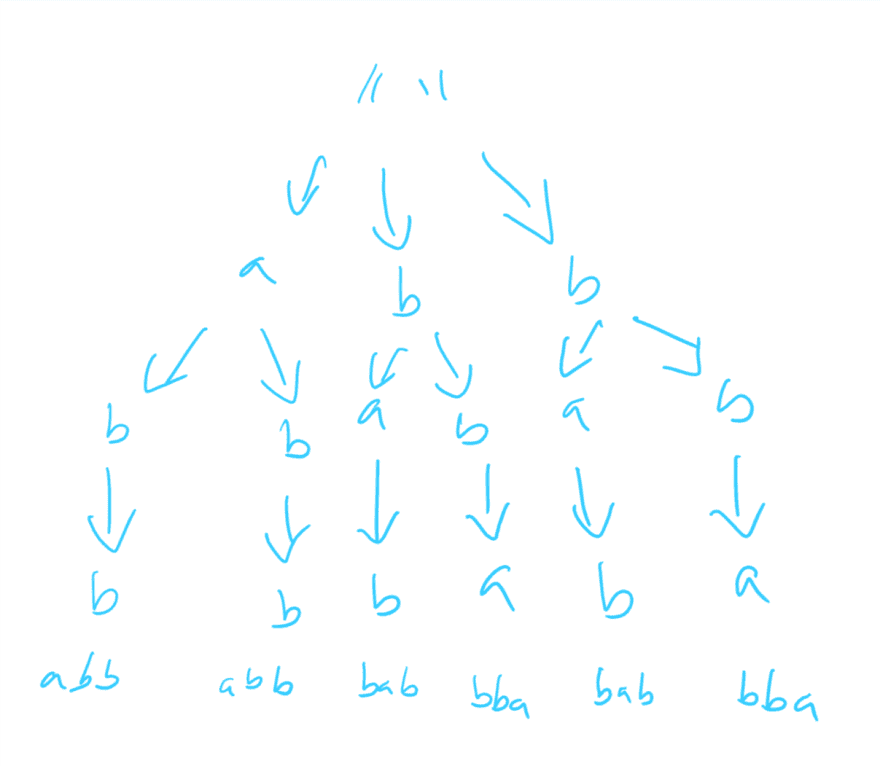 " "
a b b
b b a b a b
b b b a b a
abb abb bab bba bab bba